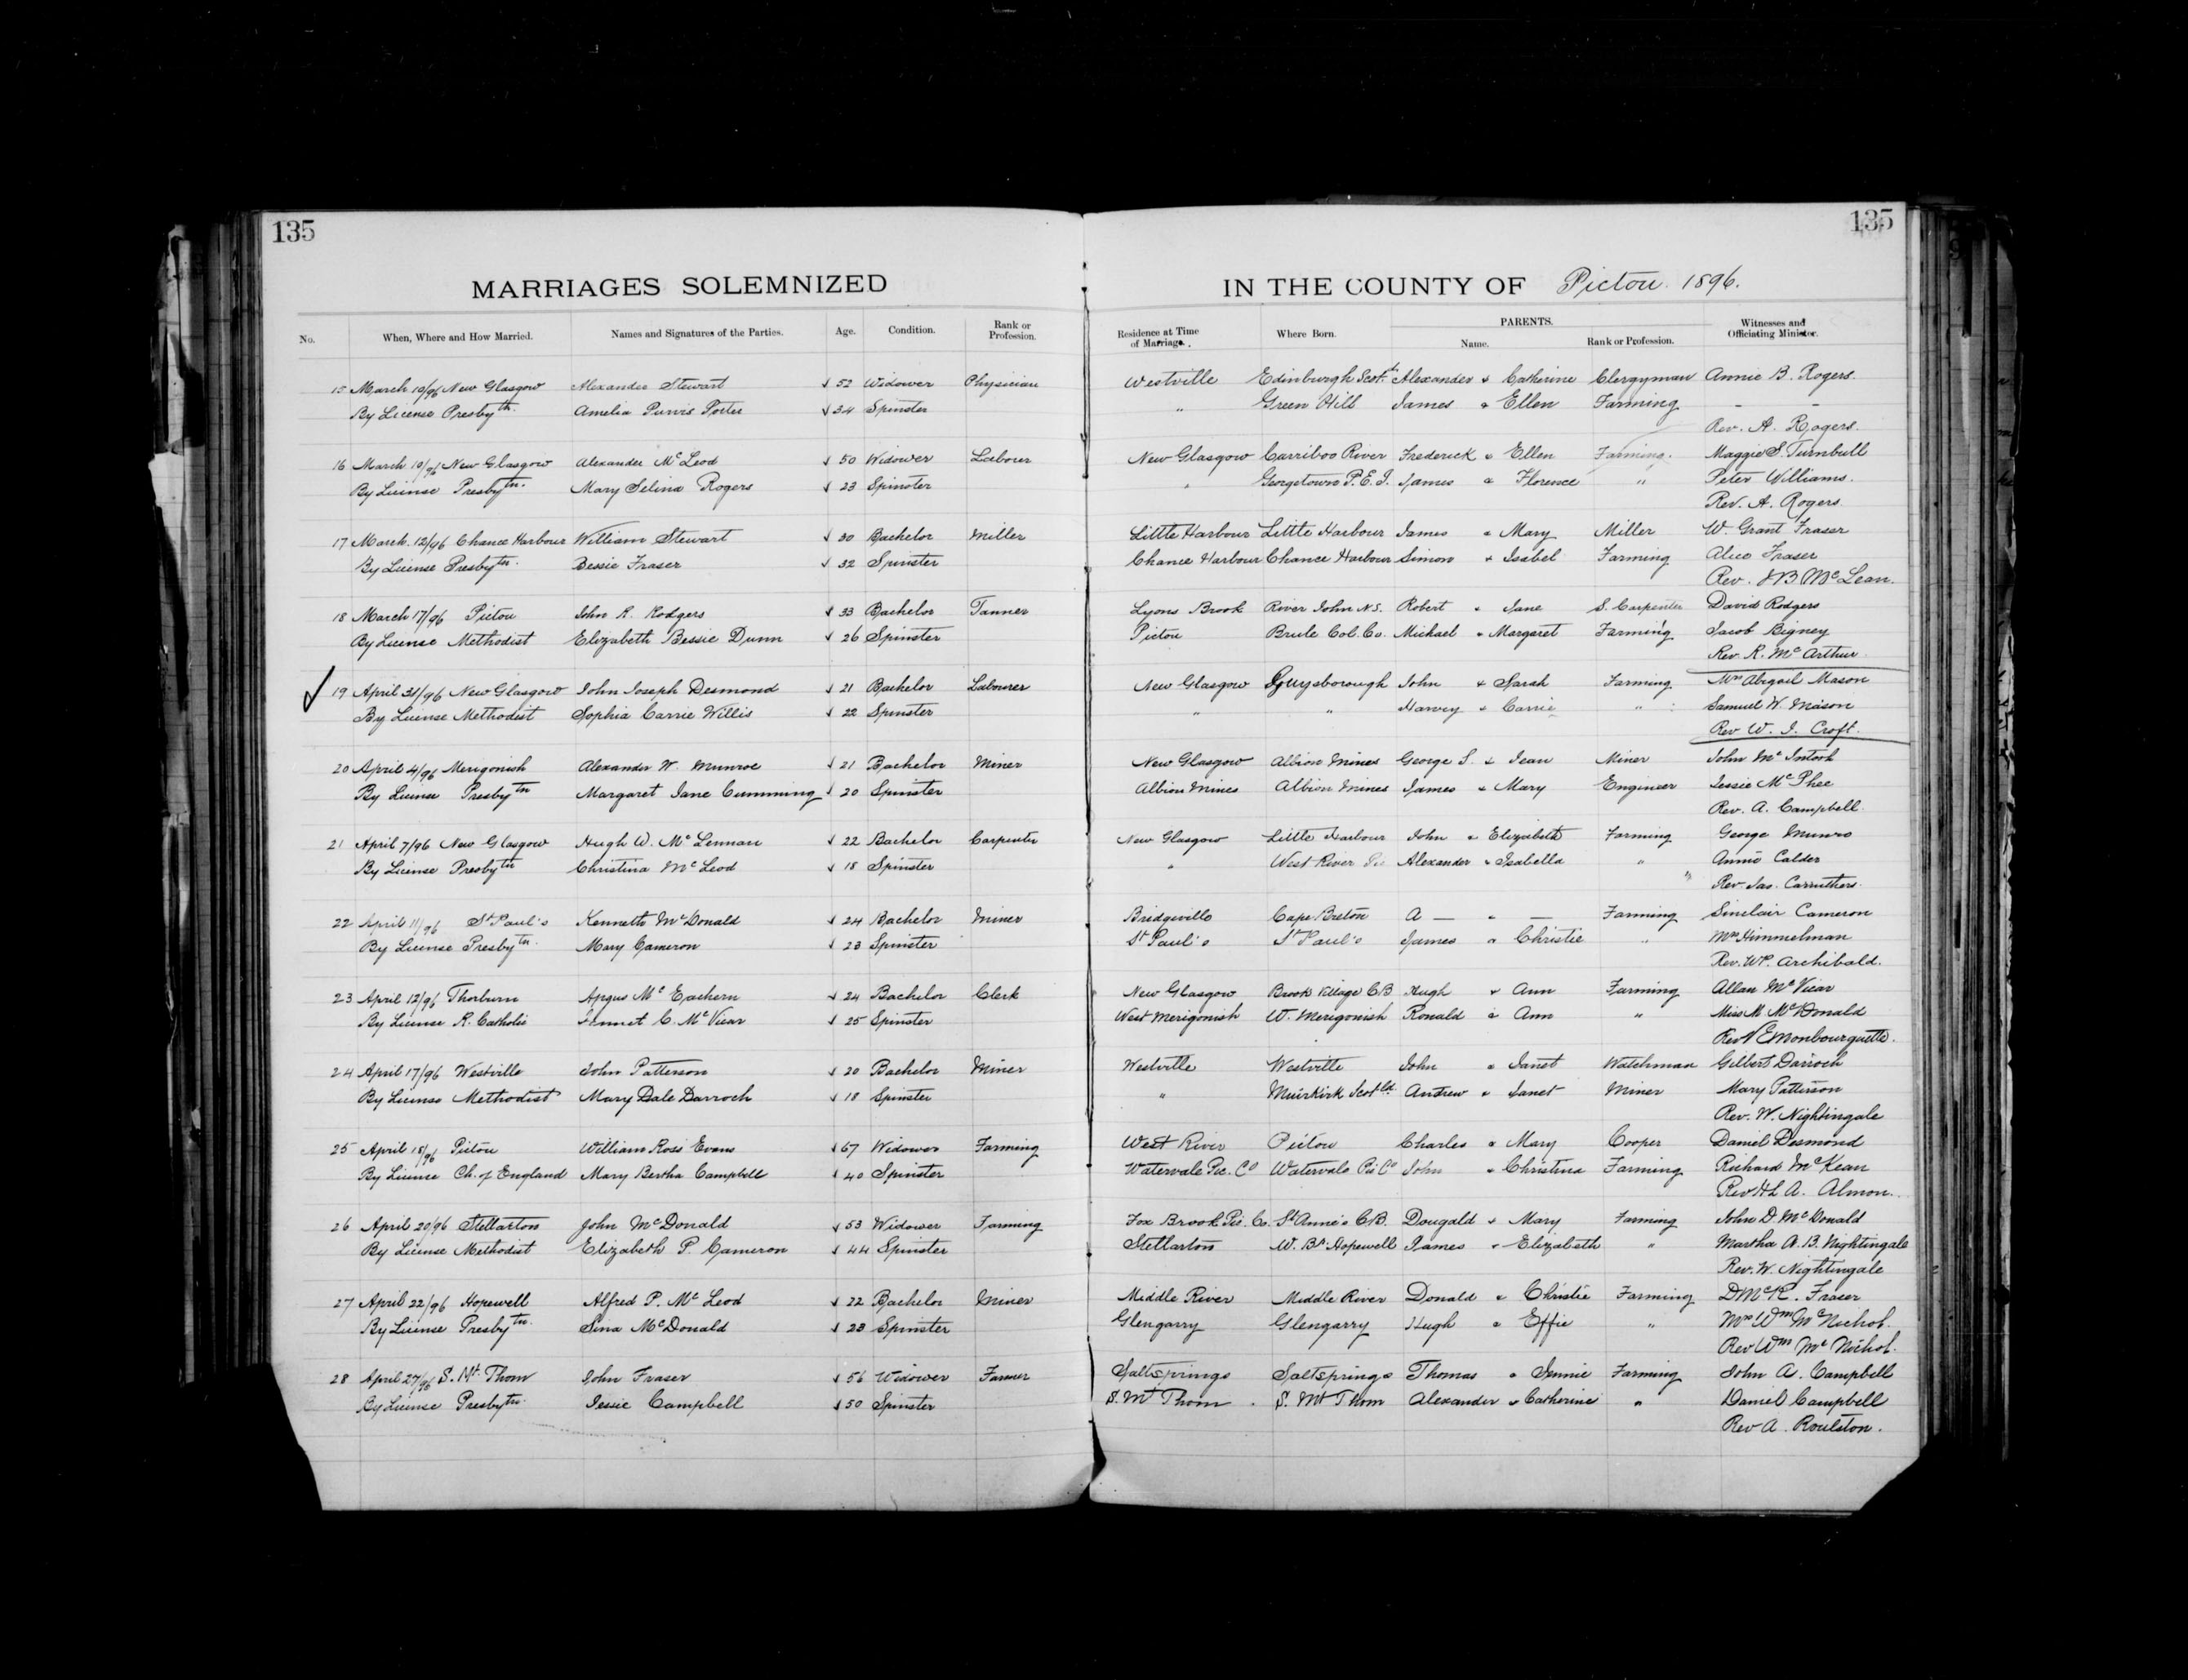 135 135
MARRIAGES SOLEMNIZED IN THE COUNTY OF Pictou 1896.
No. When, Where and How Married. Names and Signatures of the Parties. Age. Condition. Rank or Profession. Residence at Time of Marriage. Where Born. PARENTS. Name. Rank or Profession. Witnesses and Officiating Minister.
15 March 10/96 New Glasgow Alexander Stewart 52 Widower Physician Westville Edinburgh Scotld Alexander & Catherine Clergyman Annie B. Rogers.
By License Presbytn. Amelia Purvis Porter 34 Spinster " Green Hill James & Ellen Farming - -
Rev. A. Rogers.
16 March 10/96 New Glasgow Alexander McLeod 50 Widower Labour New Glasgow Carriboo River Frederick & Ellen Farming. Maggie S. Turnbull
By License Presbytn. Mary Selina Rogers 23 Spinster " Georgetown P.E.I. James & Florence " Peter Williams.
Rev. A. Rogers
17 March. 12/96 Chance Harbour William Stewart 30 Bachelor Miller Little Harbour Little Harbour James & Mary Miller W. Grant Fraser
By License Presbytn. Bessie Fraser 32 Spinster Chance Harbour Chance Harbour Simon & Isabel Farming Alice Fraser
Rev. J B McLean.
18 March 17/96 Pictou John R. Rodgers 33 Bachelor Tanner Lyons Brook River John N.S. Robert & Jane S. Carpenter David Rodgers
By License Methodist Elizabeth Bessie Dunn 26 Spinster Pictou Brule Col. Co. Michael & Margaret Farming Jacob Bigney
Rev. R. McArthur
19 April 31/96 New Glasgow John Joseph Desmond 21 Bachelor Labourer New Glasgow Guysborough John & Sarah Farming Mrs Abigail Mason
By License Methodist Sophia Carrie Willis 22 Spinster " " Harvey & Carrie " Samuel W. Mason
Rev W. I. Croft.
20 April 4/96 Merigonish Alexander W. Munroe 21 Bachelor Miner New Glasgow Albion Mines George S. & Jean Miner John McIntosh
By License Presbytn Margaret Jane Cumming 20 Spinster Albion Mines Albion Mines James & Mary Engineer Jessie McPhee
Rev. A. Campbell.
21 April 7/96 New Glasgow Hugh W. McLennan 22 Bachelor Carpenter New Glasgow Little Harbour John & Elizabeth Farming George Munro
By License Presbytn Christina McLeod 18 Spinster " West River Pic Alexander & Isabella " Annie Calder
" Rev. Jas. Carruthers.
22 April 11/96 St Paul's Kenneth McDonald 24 Bachelor Miner Bridgeville Cape Breton A — " — Farming Sinclair Cameron
By License Presbytn. Mary Cameron 23 Spinster St Paul's St Paul's James & Christie " Mrs Himmelman
Rev. WP. Archibald.
23 April 12/96 Thorburn Angus McEachern 24 Bachelor Clerk New Glasgow Brook Village CB Hugh & Ann Farming Allan McVicar
By License R. Catholic Jennet C. McVicar 25 Spinster West Merigonish W. Merigonish Ronald & Ann " Miss M. McDonald
Rev N E Monbourquette.
24 April 17/96 Westville John Patterson 20 Bachelor Miner Westville Westville John & Janet Watchman Gilbert Darroch
By License Methodist Mary Dale Darroch 18 Spinster " Muirkirk Scotld. Andrew & Janet Miner Mary Patterson
Rev. W. Nightingale
25 April 18/96 Pictou William Ross Evans 67 Widower Farming West River Pictou Charles & Mary Cooper Daniel Desmond
By License Ch. of England Mary Bertha Campbell 40 Spinster Watervale Pic. Co Watervale Pic Co John & Christina Farming Richard McKean
Rev H L A. Almon.
26 April 20/96 Stellarton John McDonald 53 Widower Farming Fox Brook Pic. Co. St Anne's C.B. Dougald & Mary Farming John D. McDonald
By License Methodist Elizabeth P. Cameron 44 Spinster Stellarton W. Br. Hopewell James & Elizabeth " Martha A. B. Nightingale
Rev. W. Nightingale
27 April 22/96 Hopewell Alfred P. McLeod 22 Bachelor Miner Middle River Middle River Donald & Christie Farming D McK. Fraser
By License Presbytn. Sina McDonald 23 Spinster Glengarry Glengarry Hugh & Effie " Mrs Wm McNichol.
Rev Wm McNichol.
28 April 27/96 S. Mt. Thom John Fraser 56 Widower Farmer Saltsprings Saltsprings Thomas & Jennie Farming John A. Campbell
By License Presbytn. Jessie Campbell 50 Spinster S. Mt Thom S. Mt Thom Alexander & Catherine " Daniel Campbell
Rev A. Roulston.